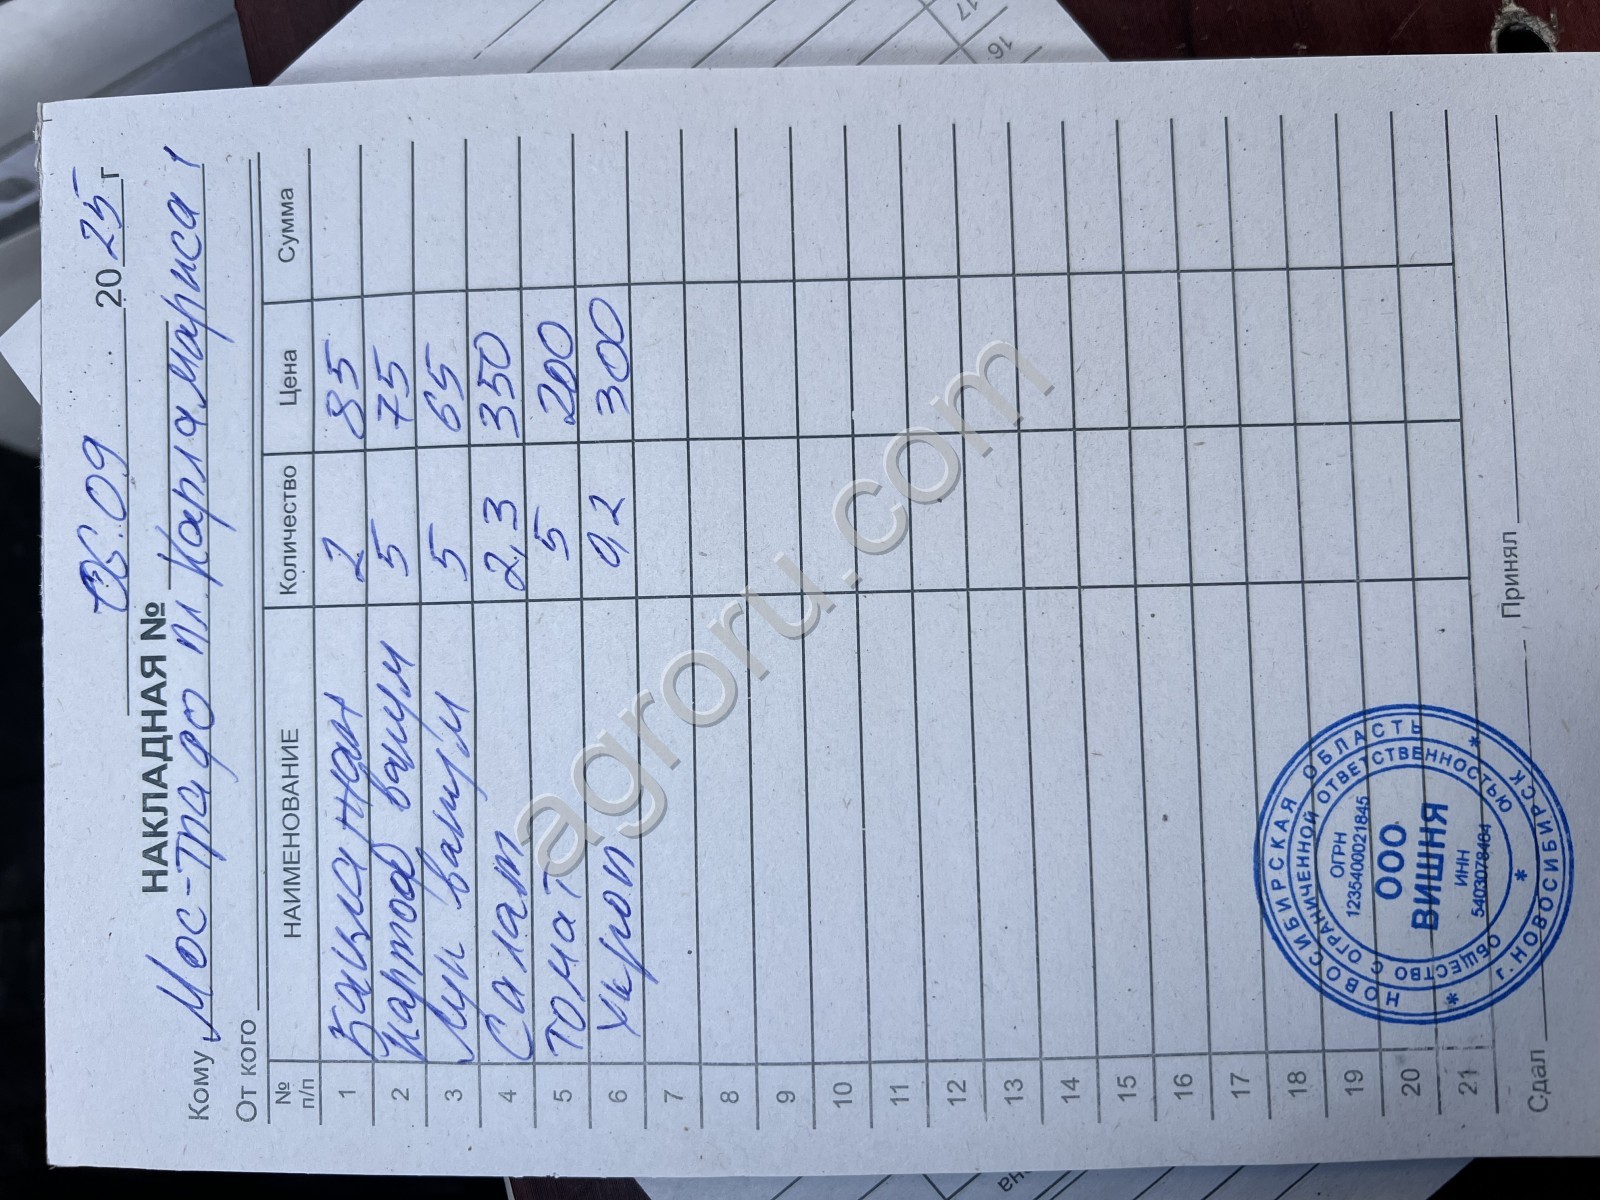 08.09 2025 г
НАКЛАДНАЯ №
Кому Мос-трифо пл Карла маркса 1
От кого
№ п/п НАИМЕНОВАНИЕ Количество Цена Сумма
1 2 85
2 Картоф 5 75
3 Лук 5 65
4 Салат 2,3 350
5 Томат 5 200
6 Укроп 0,2 300
7
8
9
10
11
12
13
14
15
16
17
18
19
20
21
Сдал Принял
НОВОСИБИРСКАЯ ОБЛАСТЬ
* г. НОВОСИБИРСК *
ОБЩЕСТВО С ОГРАНИЧЕННОЙ ОТВЕТСТВЕННОСТЬЮ *
ОГРН
1235400021845
ООО
ВИШНЯ
ИНН
5403078464
agroru.com
16
17